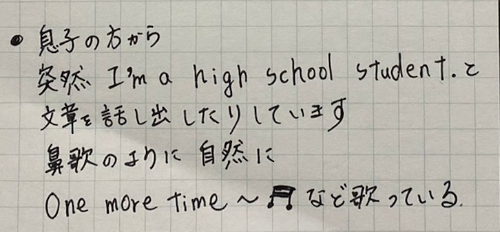 • 息子の方から
突然 I'm a high school student. と
文章を話し出したりしています
鼻歌のように 自然に
One more time ～ ♬ など歌っている.